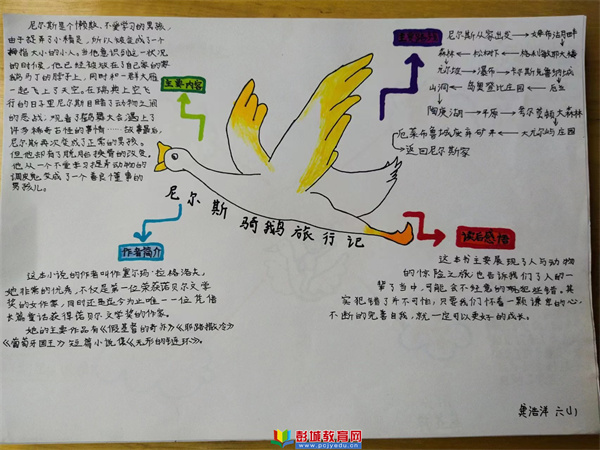 尼尔斯是个懒散、不爱学习的男孩,
由于捉弄了小精灵,所以被变成了一个
拇指大小的小人。当他意识到这一状况
的时候,他已经被驮在了自己家的家
鹅的脖子上,同时和一群大雁
一起飞上了天空。在瑞典上空飞
行的日子里尼尔斯目睹了动物之间
的恶战,观看了鹤舞大会,遇上了
许多稀奇古怪的事情……故事最后,
尼尔斯再次变成了正常的男孩。
但他却有了脱胎换骨的改变。
他从一个不爱学习捉弄动物的
调皮鬼变成了一个善良懂事的
男孩儿。
主要内容
尼尔斯从家出发→
森林←松树林←格里敏大教堂
瀑布
山洞←
平原
大森林
大尤尔屿庄园
返回尼尔斯家
尼尔斯骑鹅旅行记
作者简介
这本小说的作者叫作塞尔玛·拉格洛夫,
她非常的优秀,不仅是第一位荣获诺贝尔文学
奖的女作家,同时还是迄今为止唯一一位凭借
长篇童话获得诺贝尔文学奖的作家。
她的主要作品有《假基督的奇迹》《耶路撒冷》
《葡萄牙国王》
读后感悟
这本书主要展现了人与动物
的惊险之旅,也告诉我们了人的一
生当中,可能会不经意的
实犯错了并不可怕,只要我们怀着一颗谦卑的心,
不断的完善自我,就一定可以更好的成长。
龚浩洋 六(1)
彭城教育网
www.pcjyedu.cn